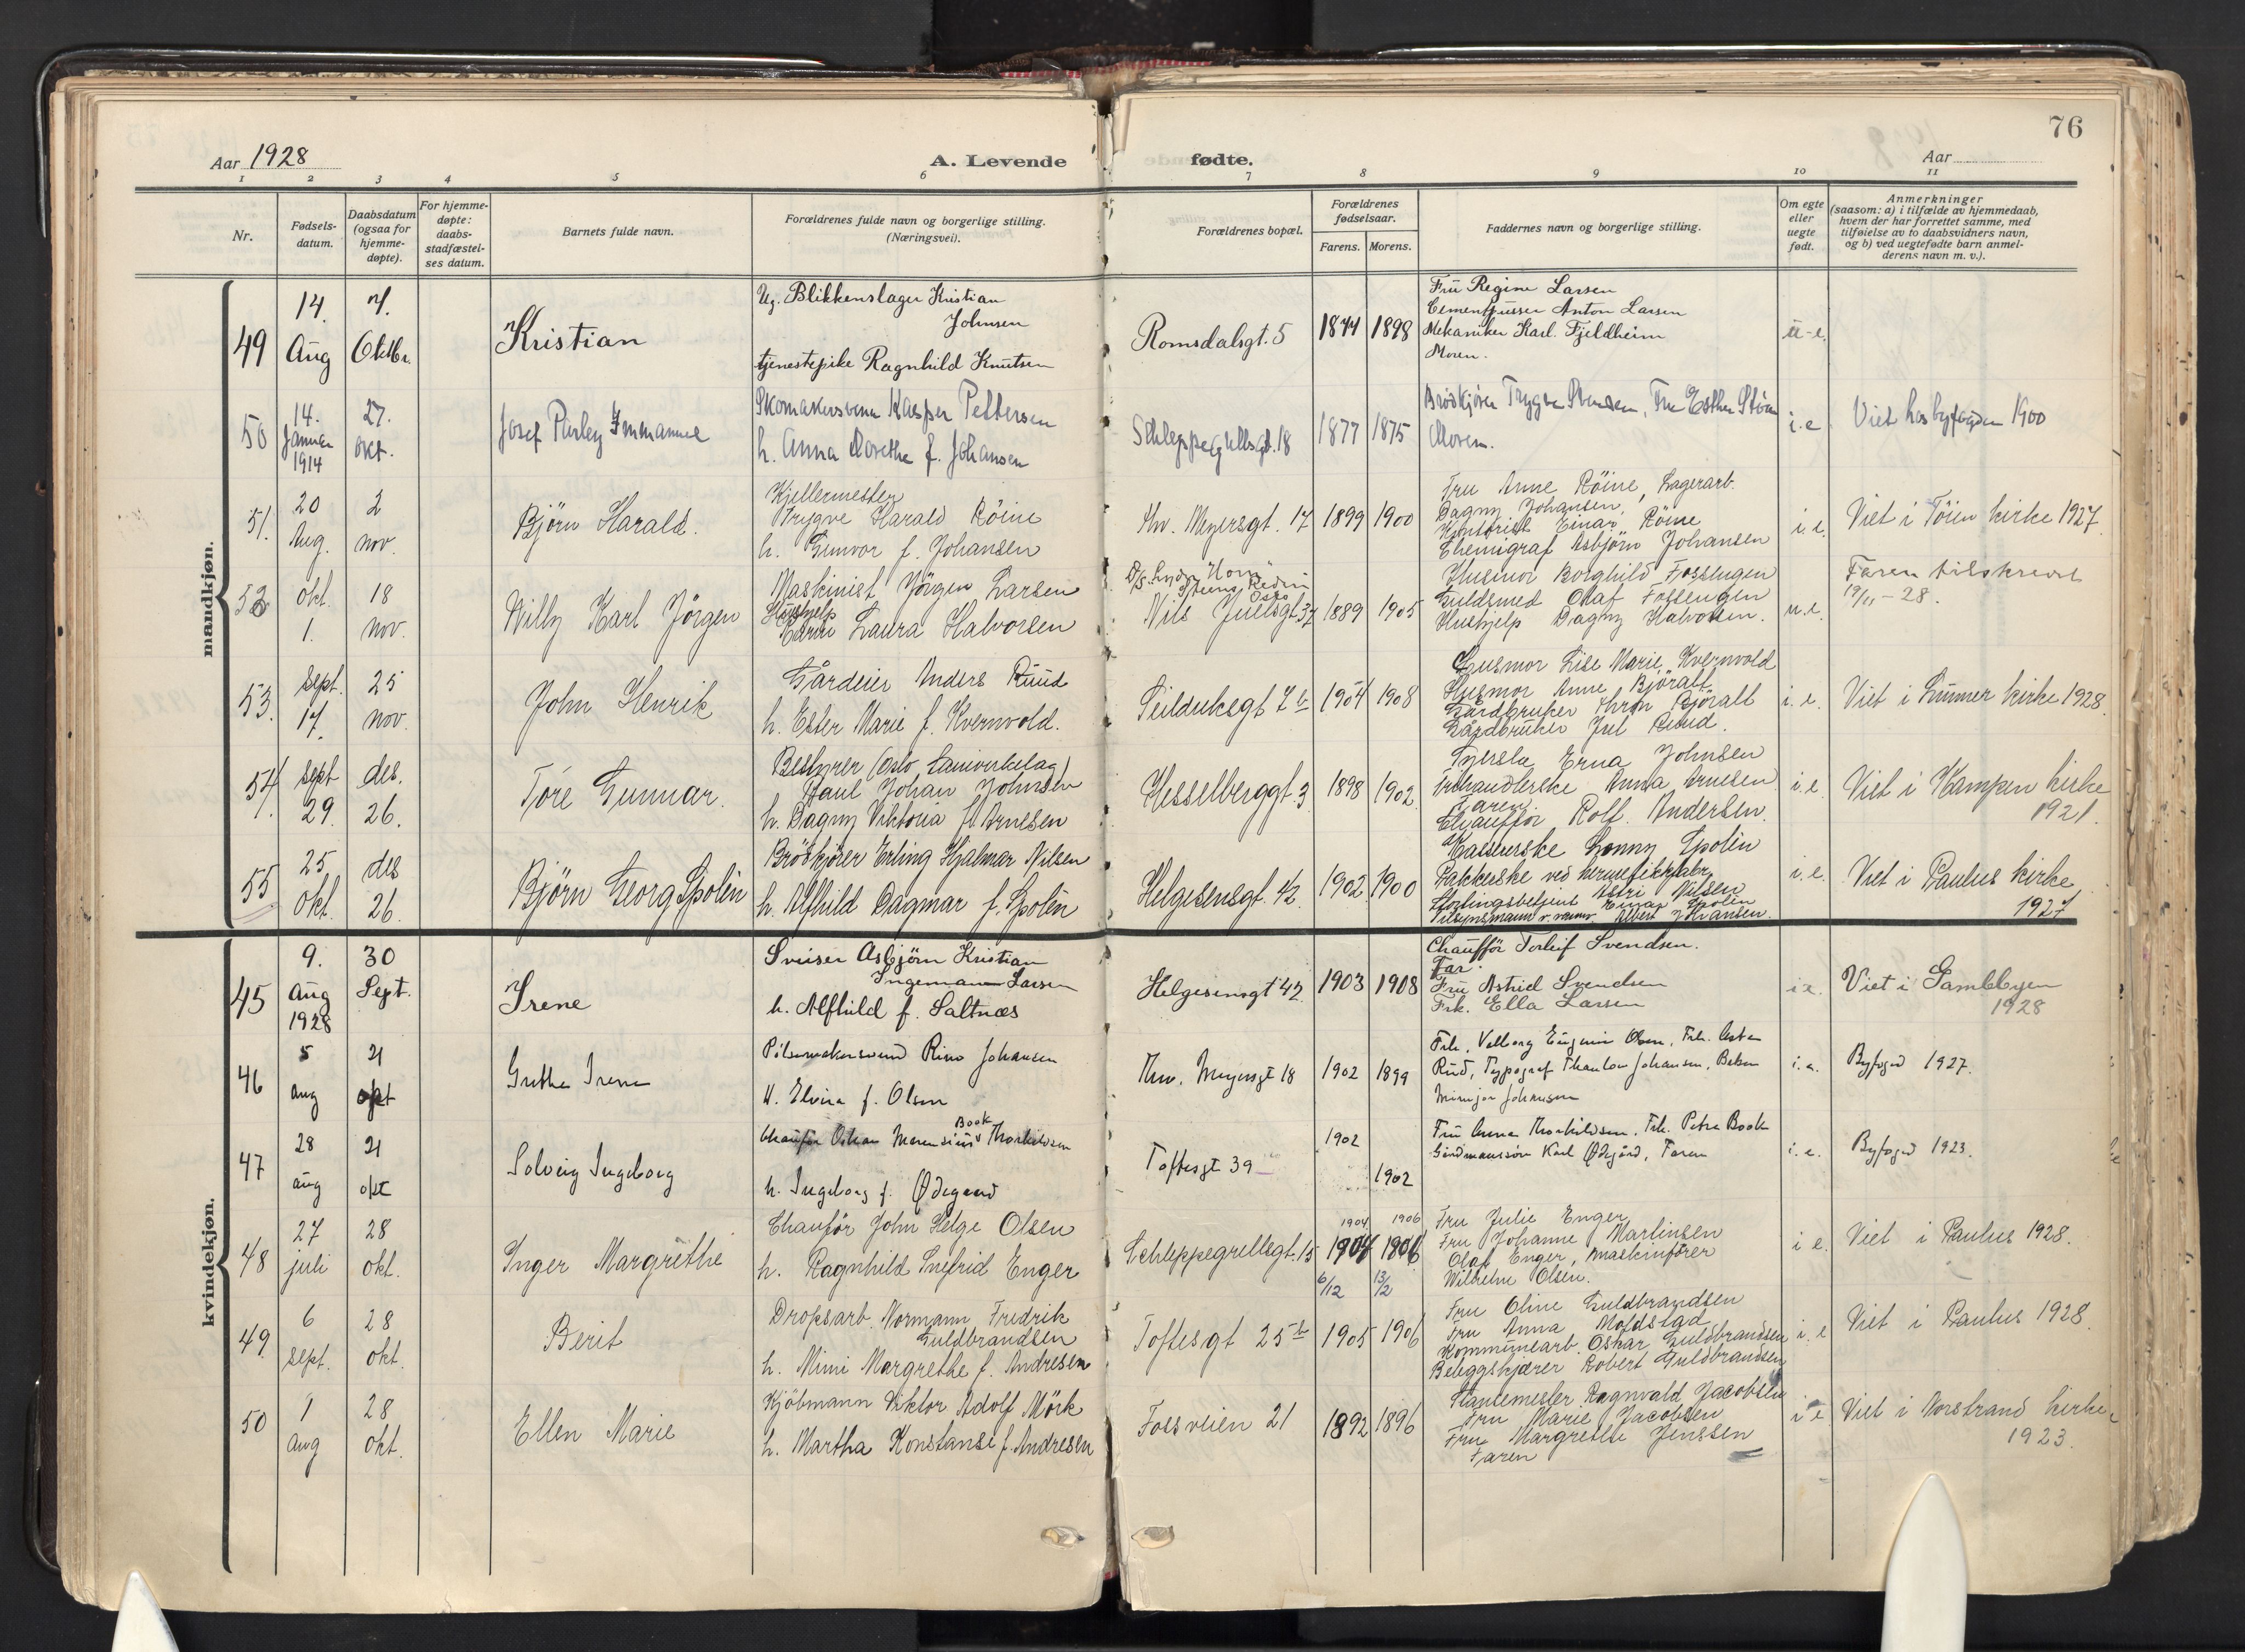 76
Aar 1928
A. Levende
fødte.
Aar
1 2 3 4 5 6 7 8 9 10 11
Nr.
Fødsels-
datum.
Daabsdatum
(ogsaa for
hjemme-
døpte).
For hjemme-
døpte:
daabs-
stadfæstel-
ses datum.
Barnets fulde navn.
Forældrenes fulde navn og borgerlige stilling.
(Næringsvei).
Forældrenes bopæl.
Forældrenes
fødselsaar.
Farens. Morens.
Faddernes navn og borgerlige stilling.
Om egte
eller
uegte
født.
Anmerkninger
(saasom: a) i tilfælde av hjemmedaab,
hvem der har forrettet samme, med
tilføielse av to daabsvidners navn,
og b) ved uegtefødte barn anmel-
derens navn m. v.).
mandkjøn.
49
14.
Aug
7.
Oktbr.
Kristian
Ug. Blikkenslager Kristian
Johnsen
tjenestepike Ragnhild Knutsen
Romsdalsgt. 5
1898
Fru Regine Larsen
Anton Larsen
Mekaniker Karl Fjeldheim
Moren.
u-e.
50
14.
Januar
1914
27.
okt.
Josef Parley Immanuel
Skomakersvenn Kasper Pettersen
h. Anna Dorethe f. Johansen
Schleppegrellsgt. 18
1877 1875
Brødkjører Trygve Fru Esther
Moren.
i.e
Viet hos byfogden 1900
51.
20
Aug.
2
nov.
Bjørn Harald.
Kjellermester
Trygve Harald Röine
h. Gunvor f. Johansen
Thv. Meyersgt. 17
1899 1900
Fru Anne Röine, Lagerarb.
Dagny Johansen,
Kontorist Einar Röine
Chemigraf Asbjørn Johansen
i. e.
Viet i Töien kirke 1927
52
okt.
1.
18
nov.
Willy Karl Jörgen
Maskinist Jörgen Larsen
Hushjelp
Laura Halvorsen
Oslo
Nils Juelsgt 37
1889 1905
Husmor Borghild Fossengen
Guldsmed Olaf Fossengen
Hushjelp Dagny Halvorsen.
u.e.
Faren tilskrevet
19/11-28.
53.
sept.
17.
25
nov.
John Henrik
Gårdeier Anders Ruud
h. Ester Marie f. Kvernvold.
Seilduksgt 7 b
1904 1908
Husmor Lise Marie Kvernvold
Husmor Anne Björalt
Gårdbruker Björalt
Gårdbruker Jul Ruud.
i. e.
Viet i Lunner kirke 1928.
54.
sept
29.
des.
26.
Tore Gunnar.
Bestyrer (Oslo Samvirkelag)
Paul Johan Johnsen
h. Dagny Viktoria f. Arnesen
Hesselberggt. 3
1898 1902
Erna Johnsen
Anna Arnesen
Faren.
Chaufför Rolf. Andersen.
i.e.
Viet i Kampen kirke
1921.
55
25
okt.
des
26.
Björn Georg Spolén
Brödkjører Erling Hjalmar Nilsen
h. Alfhild Dagmar f. Spolén
Helgesensgt. 42.
1902 1900
Kasserske Sonny Spolén
Pakkerske ved hermetikfabr.
Astri Nilsen
Stortingsbetjent Einar Spolén
Albert Johansen.
i. e.
Viet i Paulus kirke
1927
kvindekjøn.
45
9.
Aug
1928
30
Sept.
Irene
Sveiser Asbjørn Kristian
Ingemann Larsen
h. Alfhild f. Saltnæs
Helgesensgt 42
1903 1908
Chauffør Torleif Svendsen.
Far.
Fru Astrid Svendsen
Frk. Ella Larsen
i e.
Viet i Gamlebyen
1928
46
5
aug
21
okt
Grethe Irene
Pølsemakersvend Rino Johansen
H. Elvira f. Olsen
Thv. Meyersgt 18
1902 1899
Frk. Valborg Eugenie Olsen, Frk. Asta
Ruud, Typograf Thanlow Johansen, Baker
Johansen
i. e.
Byfogd 1927.
47
28
aug
21
okt
Solveig Ingeborg
Book
Chauffør Oskar Thorkildsen
h. Ingeborg f. Ødegård
Toftesgt 39
1902
1902
Fru Anna Thorkildsen, Frk. Petra Book
Karl Ødegård, Faren
i. e.
Byfogd 1923.
48
27
juli
28
okt.
Inger Margrethe
Chaufør John Helge Olsen
h. Ragnhild Snefrid Enger
Schleppegrellsgt. 15
1904 1906
1904 1906
6/12 13/2
Fru Julie Enger
Fru Johanne Martinsen
Olaf Enger, maskinfører
Wilhelm Olsen.
i e.
Viet i Paulus 1928.
49.
6
sept.
28
okt.
Berit
Dropsarb. Normann Fredrik
Guldbrandsen
h. Mimi Margrethe f. Andresen
Toftesgt 25 b
1905 1906
Fru Oline Guldbrandsen
Fru Anna Moldstad
Kommunearb. Oskar Guldbrandsen
Beleggskjører Robert Guldbrandsen
i. e
Viet i Paulus 1928.
50
1
aug
28
okt.
Ellen Marie
Kjöbmann Viktor Adolf Mörk
h. Martha Konstanse f. Andresen
Fossveien 21
1892 1896
Ragnvald Jacobsen
Fru Marie Jacobsen
Fru Margrethe Jenssen
Faren
i e
Viet i Norstrand kirke
1923.